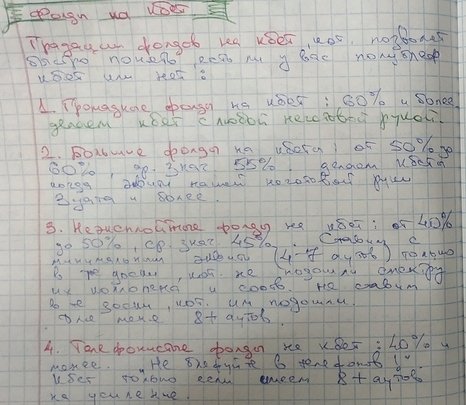 Фолды на кбет
Градации фолдов на кбет, кот. позволят
быстро понять, есть ли у вас полублеф
кбет или нет:
1. Громадные фолды на кбет: 60% и более
делаем кбет с любой неготовой рукой.
2. Большие фолды на кбета: от 50% до
60%, ср. знач. 55%. делаем кбета
когда эквити нашей неготовой руки
3 аута и более.
3. Неэксплойтные фолды на кбет: от 40%
до 50%, ср. знач 45%. Ставим с
минимальным эквити (4-7 аутов) только
в те доски, кот. не подошли спектру
их коллрена и соотв. не ставим
в те доски, кот. им подошли.
Для меня 8+ аутов.
4. Телефонистые фолды на кбет: 40% и
менее. "Не блефуйте в телефонов!".
Кбет только если имеем 8+ аутов
на усиление.